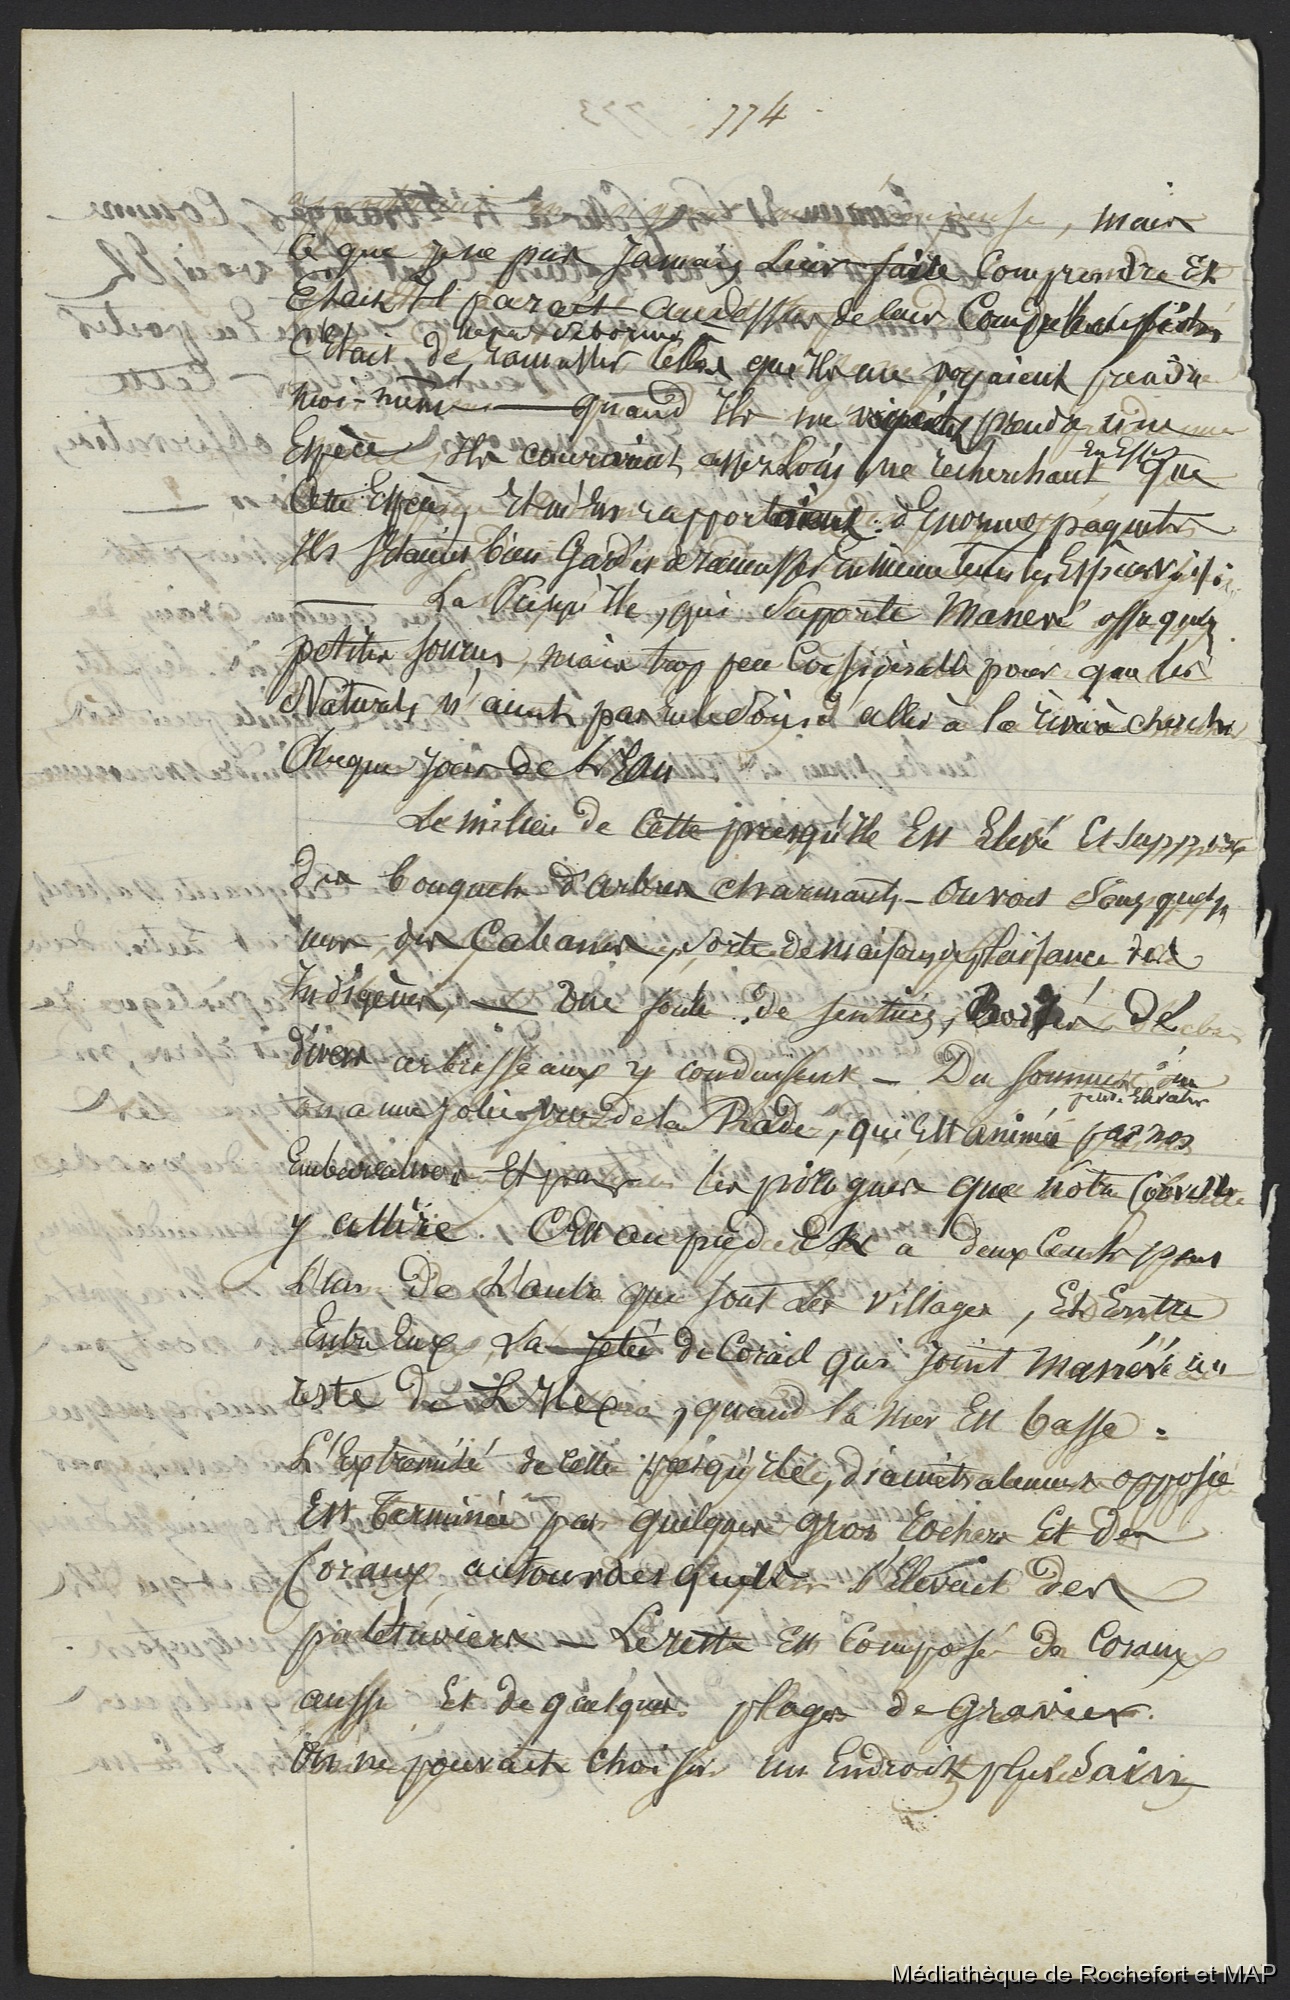 774
mais
Ce que je ne pus jamais leur faire Comprendre Et
Etait Il parait audessus de leur
ne pas se borner
C'Etait de ramasser celles que Ils me voyaient prendre
moi-même — quand Ils me voyaient prendre une
En Effet
Espèce, Ils couraient assez Loin ne recherchant que
Cette Espèce, Et m'En rapportaient d'Enormes paquets
Ils s'étaient bien Gardés de ramasser En même temps les Espèces
— La Presqu'Ile, qui Supporte Manevé offre quelq
petites sources, mais trop peu Considerable pour que les
Naturels n'aient pas le Soin d'aller à la rivière chercher
Chaque jour de L'Eau
Le milieu de Cette presqu'Ile Est Elevé Et supporte
des bouquets d'arbres charmants — On voit Sous quelq
uns, des Cabanes, Sorte de maisons de plaisance des
Indigènes, — Une foule de sentiers, de
divers arbrisseaux y conduisent — Du sommet
petite Elevation
on a une jolie vue de la Rade, qui Est animée par nos
Embarcations Et par les pirogues que notre Corvette
y attire. C'Est au pied Et a deux Cents pas
L'un De L'autre que sont Les villages, Et Entre
Entre Eux, La jetée de Corail qui joint Manévé au
reste de L'Ile, quand la mer Est basse =
L'Extremité de Cette presqu'Ile, diamétralement opposée
Est Terminée par quelques gros rochers Et des
Coraux, autour desquels s'Elevait des
palétuviers — Le reste Est Composé de Coraux
aussi Et de quelques plages de Gravier.
On ne pouvait choisir un Endroit plus Sain
Médiathèque de Rochefort et MAP